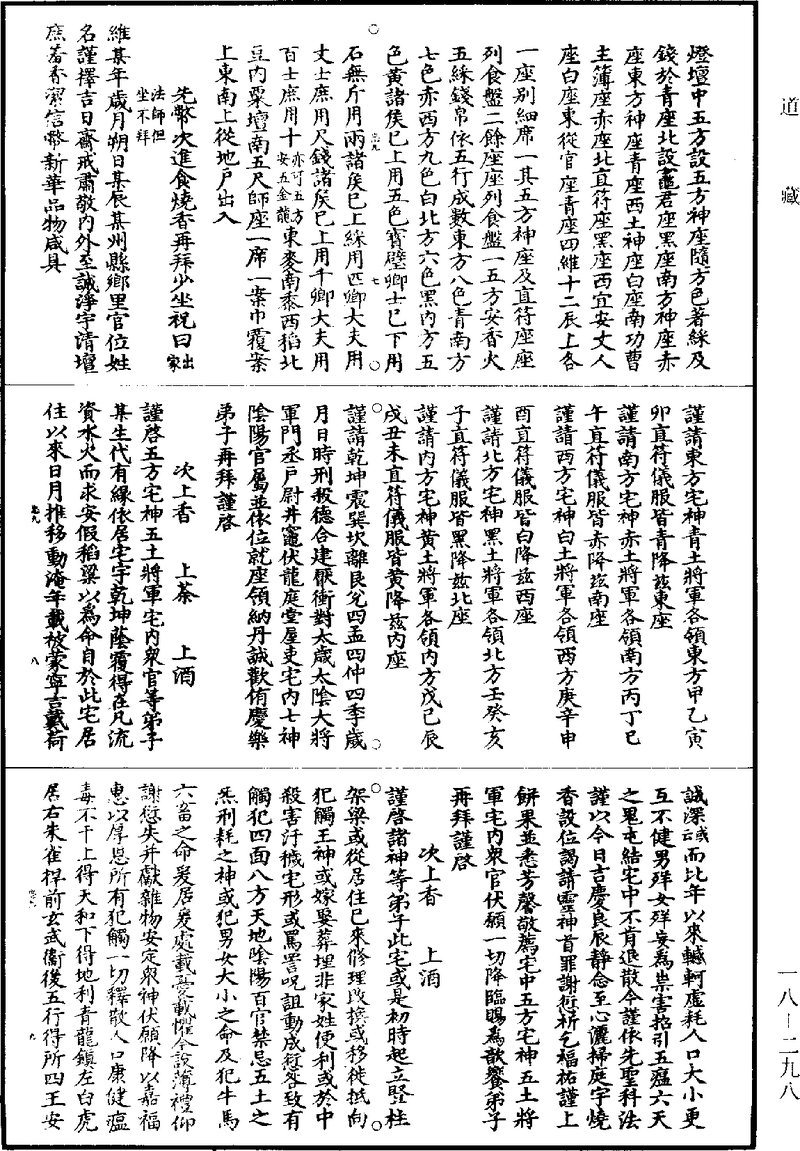 道藏
燈壇中五方設五方神座隨方色著綵及
錢於青座北設竈君座黑座南方神座赤
座東方神座青座西土神座白座南功曹
主簿座赤座北直符座黑座西宜安丈人
座白座東從官座青座四維十二辰上各
一座別細席一其五方神座及直符座座
列食盤二餘座座列食盤一五方安香火
五綵錢帛依五行成數東方八色青南方
七色赤西方九色白北方六色黑內方五
色黃諸侯已上用五色寶璧卿士已下用
石無斤用兩諸侯已上綵用匹卿大夫用
丈士庶用尺錢諸侯已上用千卿大夫用
百士庶用十亦可五方安五金龍東麥南黍西稻北
豆內粟壇南五尺師座一席一案巾覆案
上東南上從地戶出入
先幣次進食燒香再拜少坐祝曰出家
法師但坐不拜
維某年歲月朔日某辰某州縣鄉里官位姓
名謹擇吉日齋戒肅敬內外至誠淨宇清壇
庶羞香潔信幣新華品物咸具
謹請東方宅神青土將軍各領東方甲乙寅
卯直符儀服皆青降茲東座
謹請南方宅神赤土將軍各領南方丙丁巳
午直符儀服皆赤降茲南座
謹請西方宅神白土將軍各領西方庚辛申
酉直符儀服皆白降茲西座
謹請北方宅神黑土將軍各領北方壬癸亥
子直符儀服皆黑降茲北座
謹請內方宅神黃土將軍各領內方戊己辰
戌丑未直符儀服皆黃降茲內座
謹請乾坤震巽坎離艮兌四孟四仲四季歲
月日時刑殺德合建厭衝對太歲太陰大將
軍門丞戶尉井竈伏龍庭堂屋吏宅內七神
陰陽官屬並依位就座領納丹誠歡侑慶樂
弟子再拜謹啓
次上香 上茶 上酒
謹啓五方宅神五土將軍宅內衆官等弟子
某生代有緣依居宅宇乾坤蔭覆得在凡流
資水火而求安假稻粱以爲命自於此宅居
住以來日月推移動淹年載被蒙寧吉戴荷
誠深　而比年以來轗軻虛耗人口大小更
互不健男殃女殃妄爲祟害招引五瘟六天
之鬼屯結宅中不肯退散今謹依先聖科法
謹以今日吉慶良辰靜念至心灑掃庭宇燒
香設位謁請靈神首罪謝愆祈乞福祐謹上
餅果並悉芳馨敬薦宅中五方宅神五土將
軍宅內衆官伏願一切降臨賜爲歆饗弟子
再拜謹啓
次上香 上酒
謹啓諸神等弟子此宅或是初時起立竪柱
架梁或從居住已來修理改換或移徙抵向
犯觸王神或嫁娶葬埋非家姓便利或於中
殺害汙穢宅形或罵詈呪詛動成愆咎致有
觸犯四面八方天地陰陽百官禁忌五土之
炁刑耗之神或犯男女大小之命及犯牛馬
六畜之命爰居爰處載憂載懼今設薄禮仰
謝愆失并獻雜物安定衆神伏願降以嘉福
惠以厚恩所有犯觸一切釋散人口康健瘟
毒不干上得天和下得地利青龍鎮左白虎
居右朱雀捍前玄武衞後五行得所四王安
一八—二九八